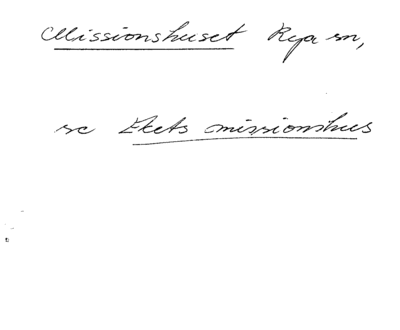 Missionshuset Rya sn,
se Ekets missionshus